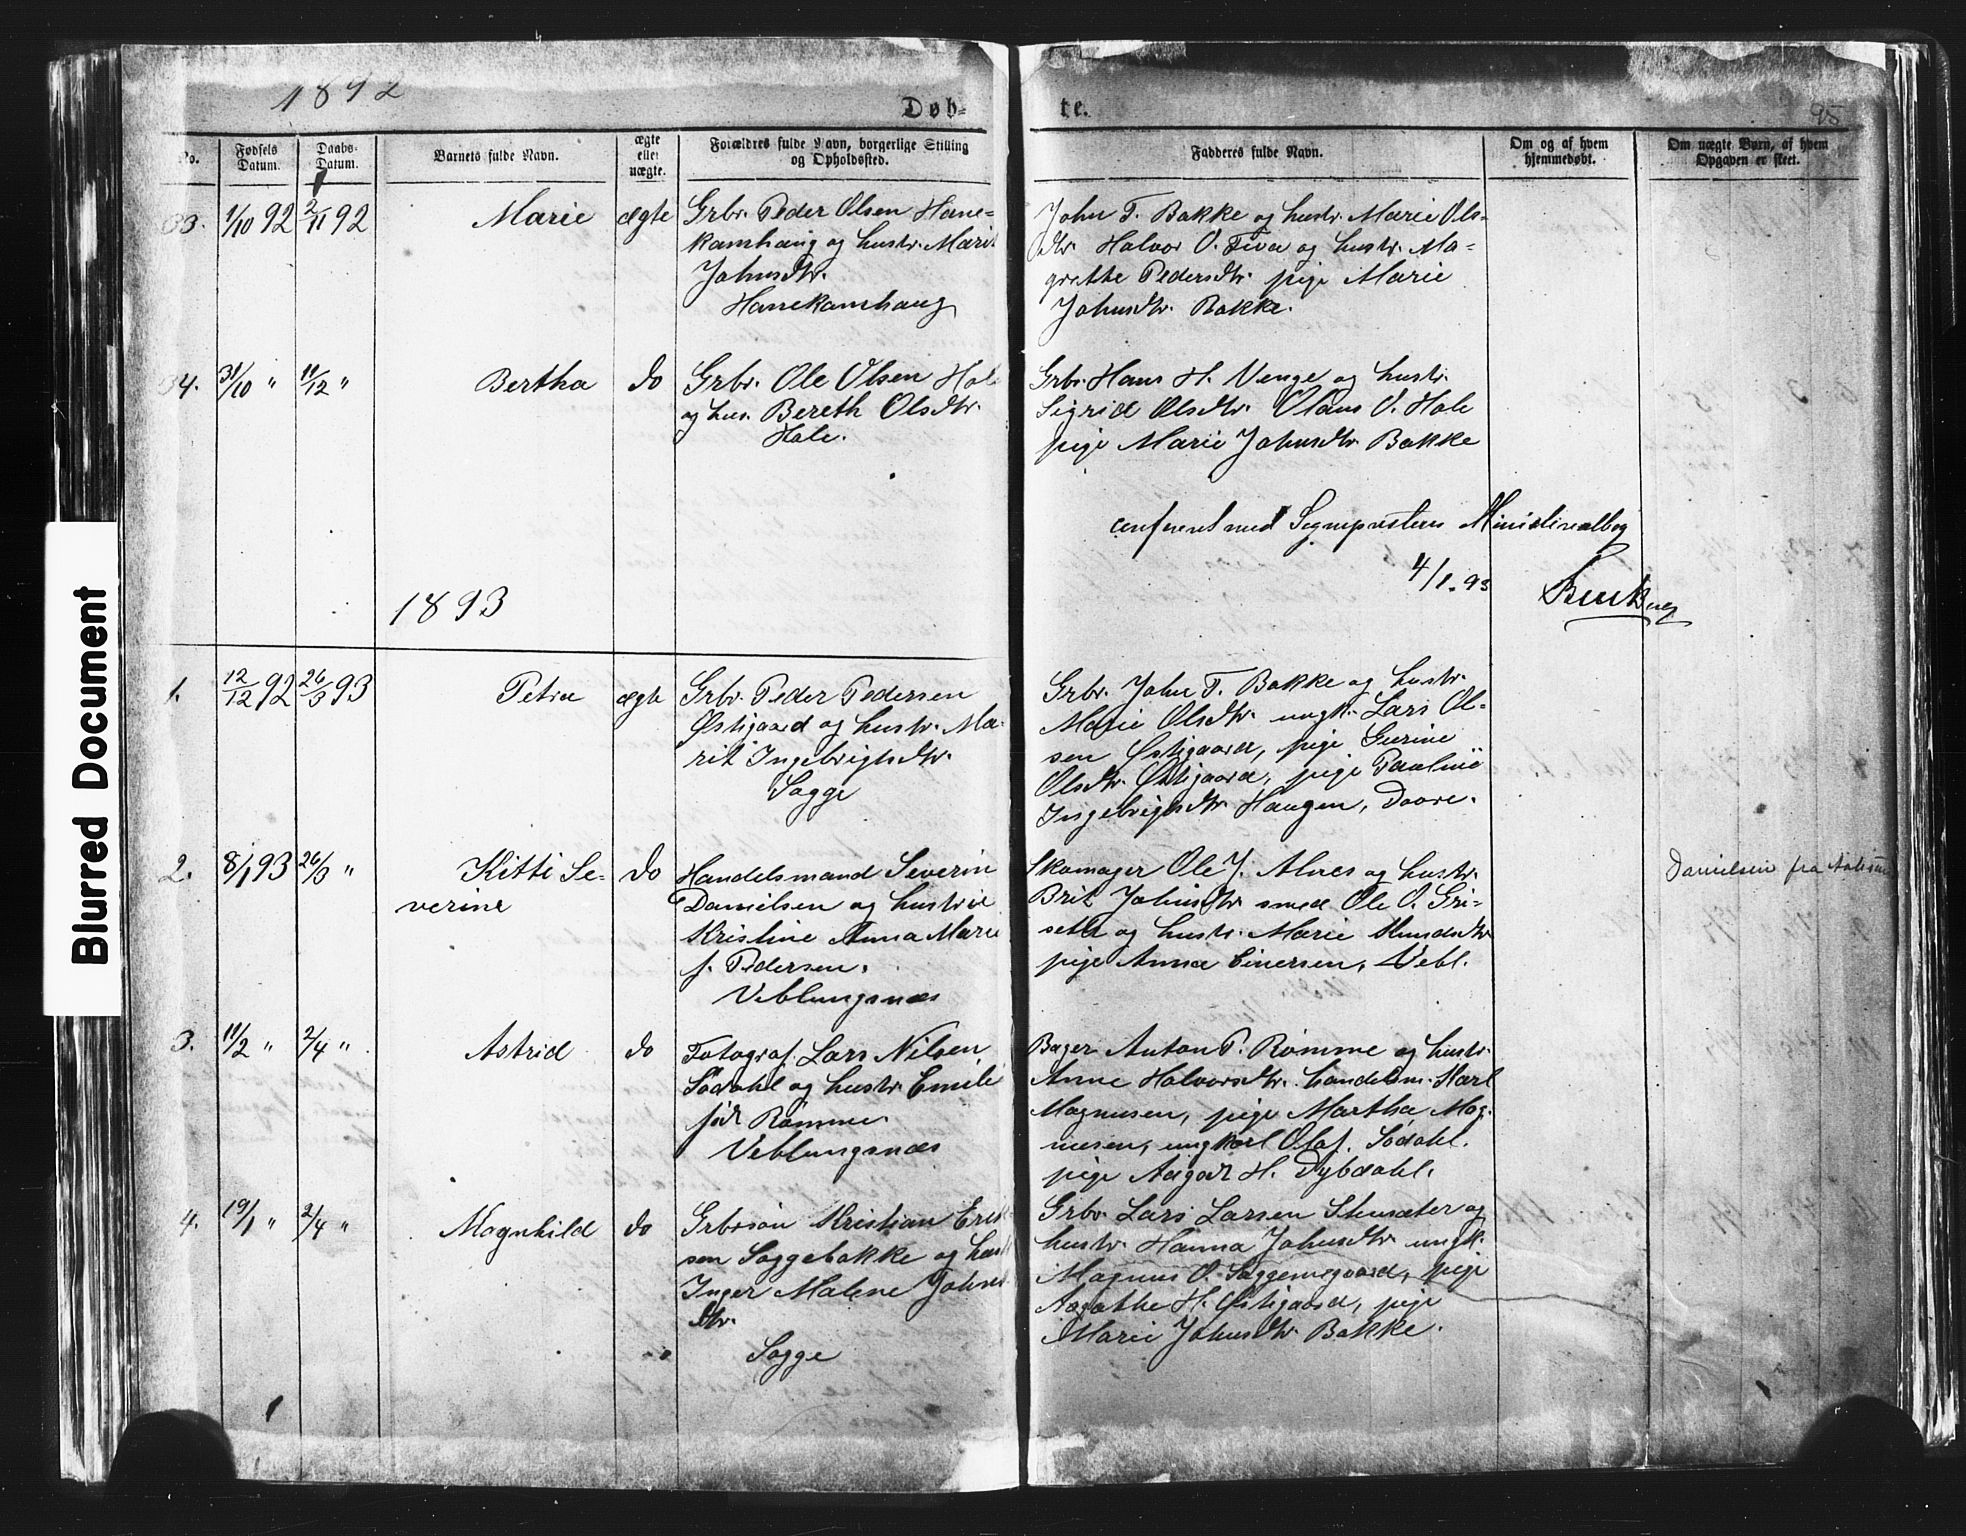 1892
Døb-
te.
95
No.
Fødsels Datum.
Daabs-Datum.
Barnets fulde Navn.
ægte eller uægte.
Forældres fulde Navn, borgerlige Stilling og Opholdssted.
Fadderes fulde Navn.
Om og af hvem hjemmedøbt.
Om uægte Børn, af hvem Opgaven er skeet.
33. 1/10 92 2/11 92 Marie ægte
Grbr. Peder Olsen Hane-
kamhaug og hustr. Marit
Johnsdtr.
Hanekamhaug
John T. Bakke og hustr. Marie Ols-
dtr. Halvor O. Fiva og hustr. Ma-
grethe Pedersdtr. pige Marie
Johnsdtr. Bakke.
34. 31/10 " 11/12 " Bertha do
Grbr. Ole Olsen Hole
og hus. Bereth Olsdtr.
Hole.
Grbr. Hans H. Venge og hustr.
Sigrid Olsdtr. Claus O. Hole
pige Marie Johnsdtr. Bakke
conferert med Sognepræstens Ministerialbog
4/1. 93
1893
1. 12/12 92 26/3 93 Petra ægte
Grbr. Peder Pedersen
Østigaard og hustr. Ma-
rit Ingebrigtsdtr.
Sogge
Grbr. John T. Bakke og hustr.
Marie Olsdtr. ungk. Lars Ol-
sen Østigaard, pige Gurine
Olsdtr. Østigaard, pige Pauline
Ingebrigtsdtr. Haugen, Dovre.
2. 8/1 93 26/3 " Kitti Se-
verine
do
Handelsmand Severin
Danielsen og hustrue
Kristine Anna Marie
f. Pedersen.
Veblungsnæs
Skomager Ole J. Alnes og hustr.
Brit Johnsdtr. smed Ole O. Gri-
seth og hustr. Marie Knudsdtr.
pige Anna Einersen, Vebl.
Danielsen fra Aalesund
3. 11/2 " 2/4 " Astrid do
Fotograf. Lars Nilsen
Södahl og hustr. Emilie
född Römme.
Veblungsnæs
Bager Anton P. Römme og hustr.
Anne Halvorsdtr. handelsm. Karl
Magnusen, pige Martha Mag-
nusen, ungkarl Olaf. Södahl.
pige Aagot H. Dybdahl.
4. 19/1 " 2/4 " Magnhild do
Grbrsön Kristian Erik-
sen Soggebakke og hustr
Inger Malene Johns-
dtr.
Sogge
Grbr. Lars Larsen Skusæter og
hustr. Hanna Johnsdtr. ungk.
Magnus O. Soggemogaard, pige
Aagothe H. Østigaard, pige
Marie Johnsdtr. Bakke.
Blurred Document